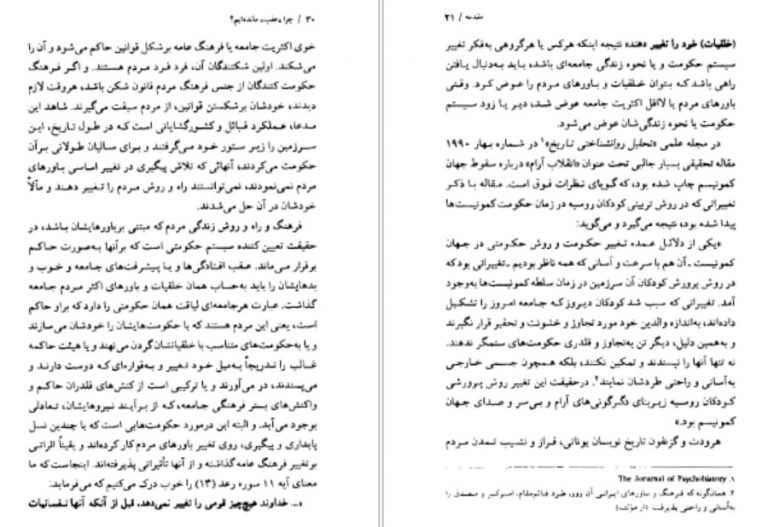 ۳۰ / چرا عقب مانده‌ایم؟
خوی اکثریت جامعه یا فرهنگ عامه برشکل قوانین حاکم می‌شود و آن را
می‌شکند. اولین شکنندگان آن، فرد فرد مردم هستند. و اگر فرهنگ
حکومت کنندگان از جنس فرهنگ مردم قانون شکن باشد، هروقت لازم
دیدند، خودشان برشکستن قوانین، از مردم سبقت می‌گیرند. شاهد این
مدعا، عملکرد قبائل و کشورگشایانی است که در طول تاریخ، این
سرزمین را زیر ستور خود می‌گرفتند و برای سالیان طولانی برآن
حکومت می‌کردند، آنهائی که تلاش پیگیری در تغییر اساسی باورهای
مردم نمی‌نمودند، نمی‌توانستند راه و روش مردم را تغییر دهند و مآلاً
خودشان در آن حل می‌شدند.
فرهنگ و راه و روش زندگی مردم که مبتنی برباورهایشان باشد، در
حقیقت تعیین کننده سیستم حکومتی است که برآنها به‌صورت حاکم
برقرار می‌ماند. عقب افتادگی‌ها و یا پیشرفت‌های جامعه و خوب و
بدهایشان را باید به‌حساب همان خلقیات و باورهای اکثر مردم جامعه
گذاشت. عبارت هرجامعه‌ای لیاقت همان حکومتی را دارد که براو حاکم
است، یعنی این مردم هستند که یا حکومت‌هایشان را خودشان می‌سازند
و یا به‌حکومت‌های متناسب با خلقیاتشان گردن می‌نهند و یا هیئت حاکمه
غالب را تدریجاً به‌میل خود تغییر و به‌قواره‌ای که دوست دارند و
می‌پسندند، در می‌آورند و یا ترکیبی است از کنش‌های قلدران حاکم و
واکنش‌های بستر فرهنگی جامعه، که از برآیند نیروهایشان، تعادلی
بوجود می‌آید. و البته این درمورد حکومت‌هایی است که با چندین نسل
پایداری و پیگیری، روی تغییر باورهای مردم کار کرده‌اند و یقیناً اثراتی
برتغییر فرهنگ عامه گذاشته و از آنها تأثیراتی پذیرفته‌اند. اینجاست که ما
معنای آیه ۱۱ سوره رعد (۱۳) را خوب درک می‌کنیم که می‌فرماید:
«... خداوند هیچ‌چیز قومی را تغییر نمی‌دهد، قبل از آنکه آنها نفسانیات
مقدمه / ۳۱
(خلقیات) خود را تغییر دهند» نتیجه اینکه هرکس یا هرگروهی به‌فکر تغییر
سیستم حکومت و یا نحوه زندگی جامعه‌ای باشد، باید به‌دنبال یافتن
راهی باشد که بتوان خلقیات و باورهای مردم را عوض کرد. وقتی
باورهای مردم یا لااقل اکثریت جامعه عوض شد، دیر یا زود سیستم
حکومت یا نحوه زندگی‌شان عوض می‌شود.
در مجله علمی «تحلیل روانشناختی تاریخ»۱ در شماره بهار ۱۹۹۰
مقاله تحقیقی بسیار جالبی تحت عنوان «انقلاب آرام» درباره سقوط جهان
کمونیسم چاپ شده بود، که گویای نظرات فوق است. مقاله با ذکر
تغییراتی که در روش تربیتی کودکان روسیه در زمان حکومت کمونیست‌ها
پیدا شده بود، نتیجه می‌گیرد و می‌گوید:
«یکی از دلائل عمده تغییر حکومت و روش حکومتی در جهان
کمونیست ـ آن هم با سرعت و آسانی که همه ناظر بودیم ـ تغییراتی بود که
در روش پرورش کودکان آن سرزمین در زمان سلطه کمونیست‌ها به‌وجود
آمد. تغییراتی که سبب شد کودکان دیروز که جامعه امروز را تشکیل
داده‌اند، به‌اندازه والدین خود مورد تجاوز و خشونت و تحقیر قرار نگیرند
و به‌همین دلیل، دیگر تن به‌تجاوز و قلدری حکومت‌های ستمگر ندهند.
نه تنها آنها را نپسندند و تمکین نکنند، بلکه همچون جسمی خارجی
به‌آسانی و راحتی طردشان نمایند۲. درحقیقت این تغییر روش پرورشی
کودکان روسیه زیربنای دگرگونی‌های آرام و بی‌سر و صدای جهان
کمونیسم بود.»
هرودت و گزنفون تاریخ نویسان یونانی، فراز و نشیب تمدن مردم
۱. The Journal of Psychohistory
۲. همانگونه که فرهنگ و باورهای ایرانی آن روز، طرد قائم‌مقام، امیرکبیر و مصدق را
به‌آسانی و راحتی پذیرفت (از مؤلف)